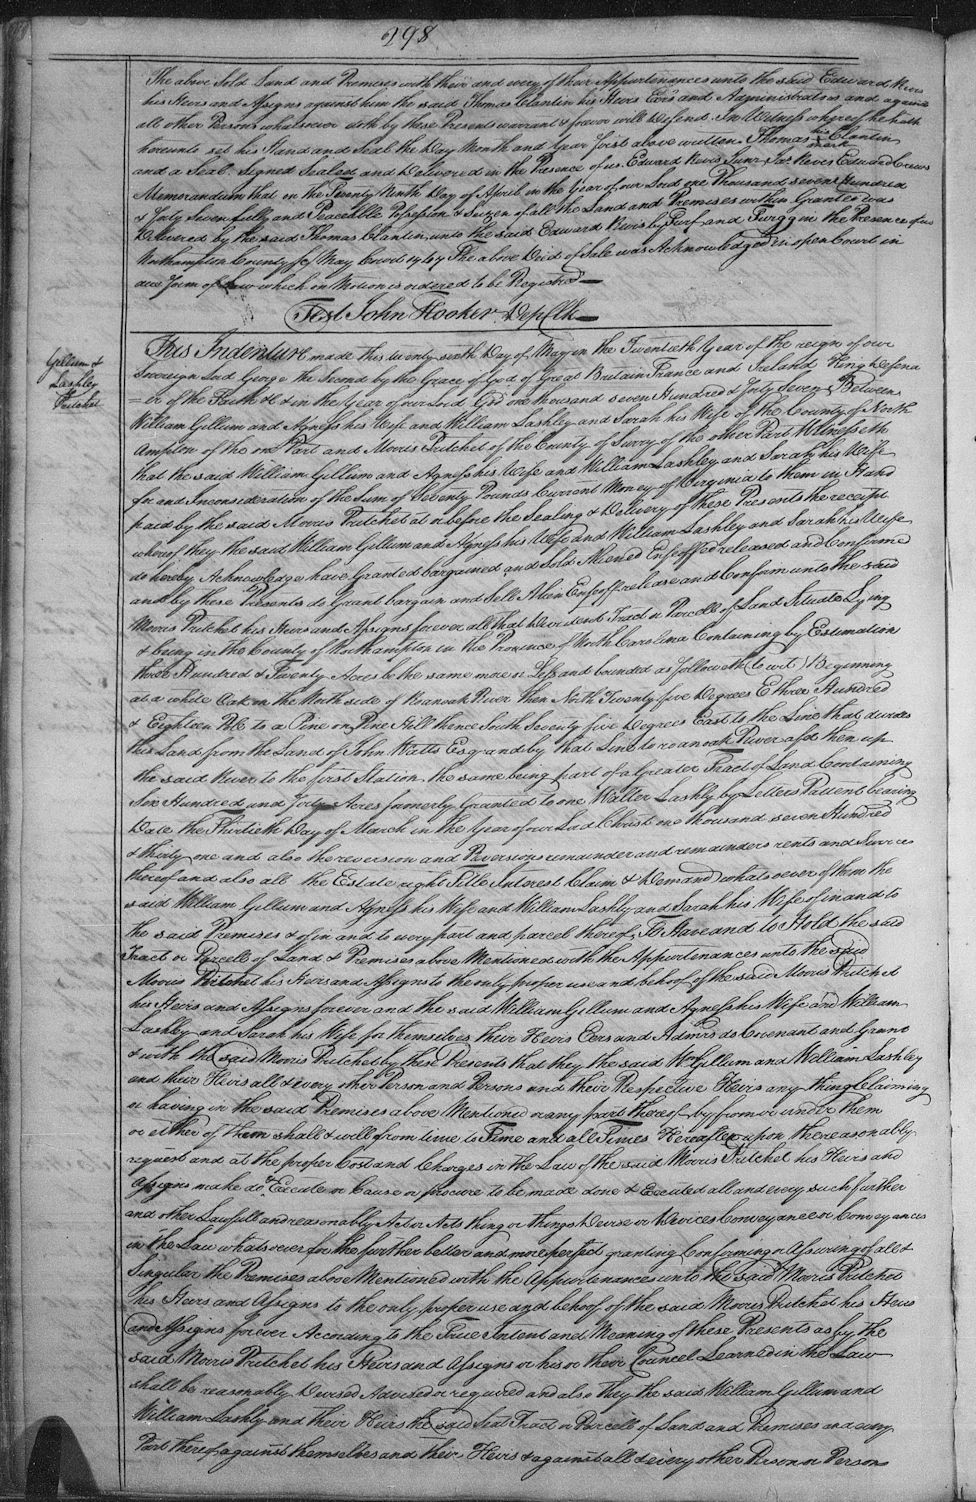 298
The above Sold Land and Premises with their and every of their Appurtenances unto the said Edward Revis
his Heirs and Assigns against him the said Thomas Clantin his Heirs Exrs and Administrators and against
all other Persons whatsoever doth by these Presents warrant & forever will Defend. In Witness whereof he hath
hereunto set his Hand and Seal the Day Month and Year first above written. Thomas his mark Clantin
and a Seal. Signed Sealed and Delivered in the Presence of us Edward Revis Junr Revis Edward Crews
Memorandum that on the Twenty Ninth Day of April in the Year of our Lord one Thousand seven Hundred
& Forty Seven fully and Peaceable Possession & Seizen of all the Land and Premises within Granted was
Delivered by the said Thomas Clantin, unto the said Edward Revis by Turf and Twigg in the Presence of us
Northampton County Sc May Court 1747 The above Deed of Sale was Acknowledged in open Court in
due Form of Law which on Motion is ordered to be Registred
Test John Hooker Dep Clk
Gillum &
Lashley
Pritchet
This Indenture made this twenty sixth Day of May in the Twentieth Year of the reign of our
Sovereign Lord George the Second by the Grace of God of Great Britain France and Ireland King Defend
=er of the Faith &c & in the Year of our Lord God one thousand seven Hundred & Forty Seven Between
William Gillum and Agness his Wife and William Lashley and Sarah his Wife of the County of North
ampton of the one Part and Morris Pritchet of the County of Surry of the other Part Witnesseth
that the said William Gillium and Agness his Wife and William Lashley and Sarah his Wife
for and Inconsideration of the Sum of Seventy Pounds Currant Money of Virginia to them in Hand
paid by the said Morris Pritchet at or before the Sealing & Delivery of these Presents the receipt
whereof they the said William Gillum and Agness his Wife and William Lashley and Sarah his Wife
do hereby Acknowledge have Granted bargained and Sold Aliened Enfeoffed released and Confirmed
and by these Presents do Grant bargain and Sell Alien Enfeoff release and Confirm unto the said
Morris Pritchet his Heirs and Assigns forever all that Devident Tract or Parcell of Land Situate Lying
& being in the County of Northampton in the Province of North Carolina Containing by Estimation
three Hundred & Twenty Acres be the same more or Less and bounded as followeth (to wit) Beginning
at a white Oak on the North side of Roanoak River then North Twenty five Degrees E three Hundred
& Eighteen Pole to a Pine on Pine Hill thence South Seventy five Degrees East to the Line that divides
this Land from the Land of John Watts Esqr and by that Line to roanoak River and then up
the said River to the first Station, the same being part of a Greater Tract of Land Containing
Six Hundred and Forty Acres formerly Granted to one Walter Lashly by Letters Pattent bearing
Date the Thirtieth Day of March in the Year of our Lord Christ one thousand seven Hundred
& thirty one and also the reversion and Reversions remainder and remainders rents and Services
thereof and also all the Estate right Title Interest Claim & Demand whatsoever of them the
said William Gillum and Agness his Wife and William Lashly and Sarah his Wife of in and to
the said Premises & of in and to every part and parcel thereof, To Have and to Hold the said
Tract or Parcell of Land & Premises above Mentioned with the Appurtenances unto the said
Morris Pritchet his Heirs and Assigns to the only proper use and behoof of the said Morris Pritchet
his Heirs and Assigns forever and the said William Gillum and Agness his Wife and William
Lashly and Sarah his Wife for themselves their Heirs Exers and Admrs do Covenant and Grant
& with the said Morris Pritchet by these Presents that they the said Wm Gillum and William Lashley
and their Heirs all & every other Person and Persons and their Respective Heirs any thing Claiming
or having in the said Premises above Mentioned or any part thereof by from or under them
or either of them shall & will from time to Time and all Times Hereafter upon the reasonably
request and at the proper Cost and Charges in the Law of the said Morris Pritchet his Heirs and
Assigns make do & Execute or Cause or procure to be made done & Executed all and every such further
and other Lawfull and reasonably Act or Acts thing or things Devise or Devices Conveyance or Conveyances
in the Law whatsoever for the further better and more perfect granting Conforming or Assuring of all &
Singular the Premises above Mentioned with the Appurtenances unto the said Morris Pritchet
his Heirs and Assigns to the only proper use and behoof of the said Morris Pritchet his Heirs
and Assigns forever According to the True Intent and Meaning of these Presents as by the
said Morris Pritchet his Heirs and Assigns or his or their Councel Learned in the Law
shall be reasonably Devised Advised or required and also they the said William Gillum and
William Lashly and their Heirs the said Tract or Parcell of Land and Premises and every
Part thereof against themselves and their Heirs & against all & every other Person or Persons